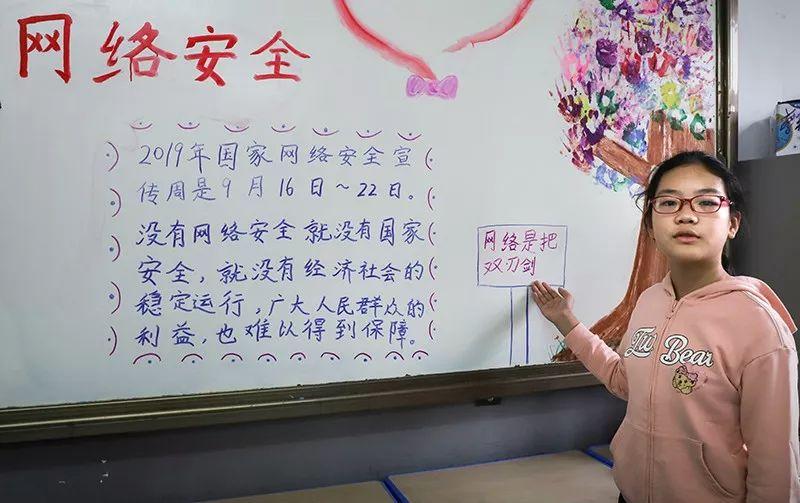 网络安全
2019年国家网络安全宣
传周是9月16日～22日。
没有网络安全就没有国家
安全，就没有经济社会的
稳定运行，广大人民群众的
利益，也难以得到保障。
网络是把
双刃剑
Bear